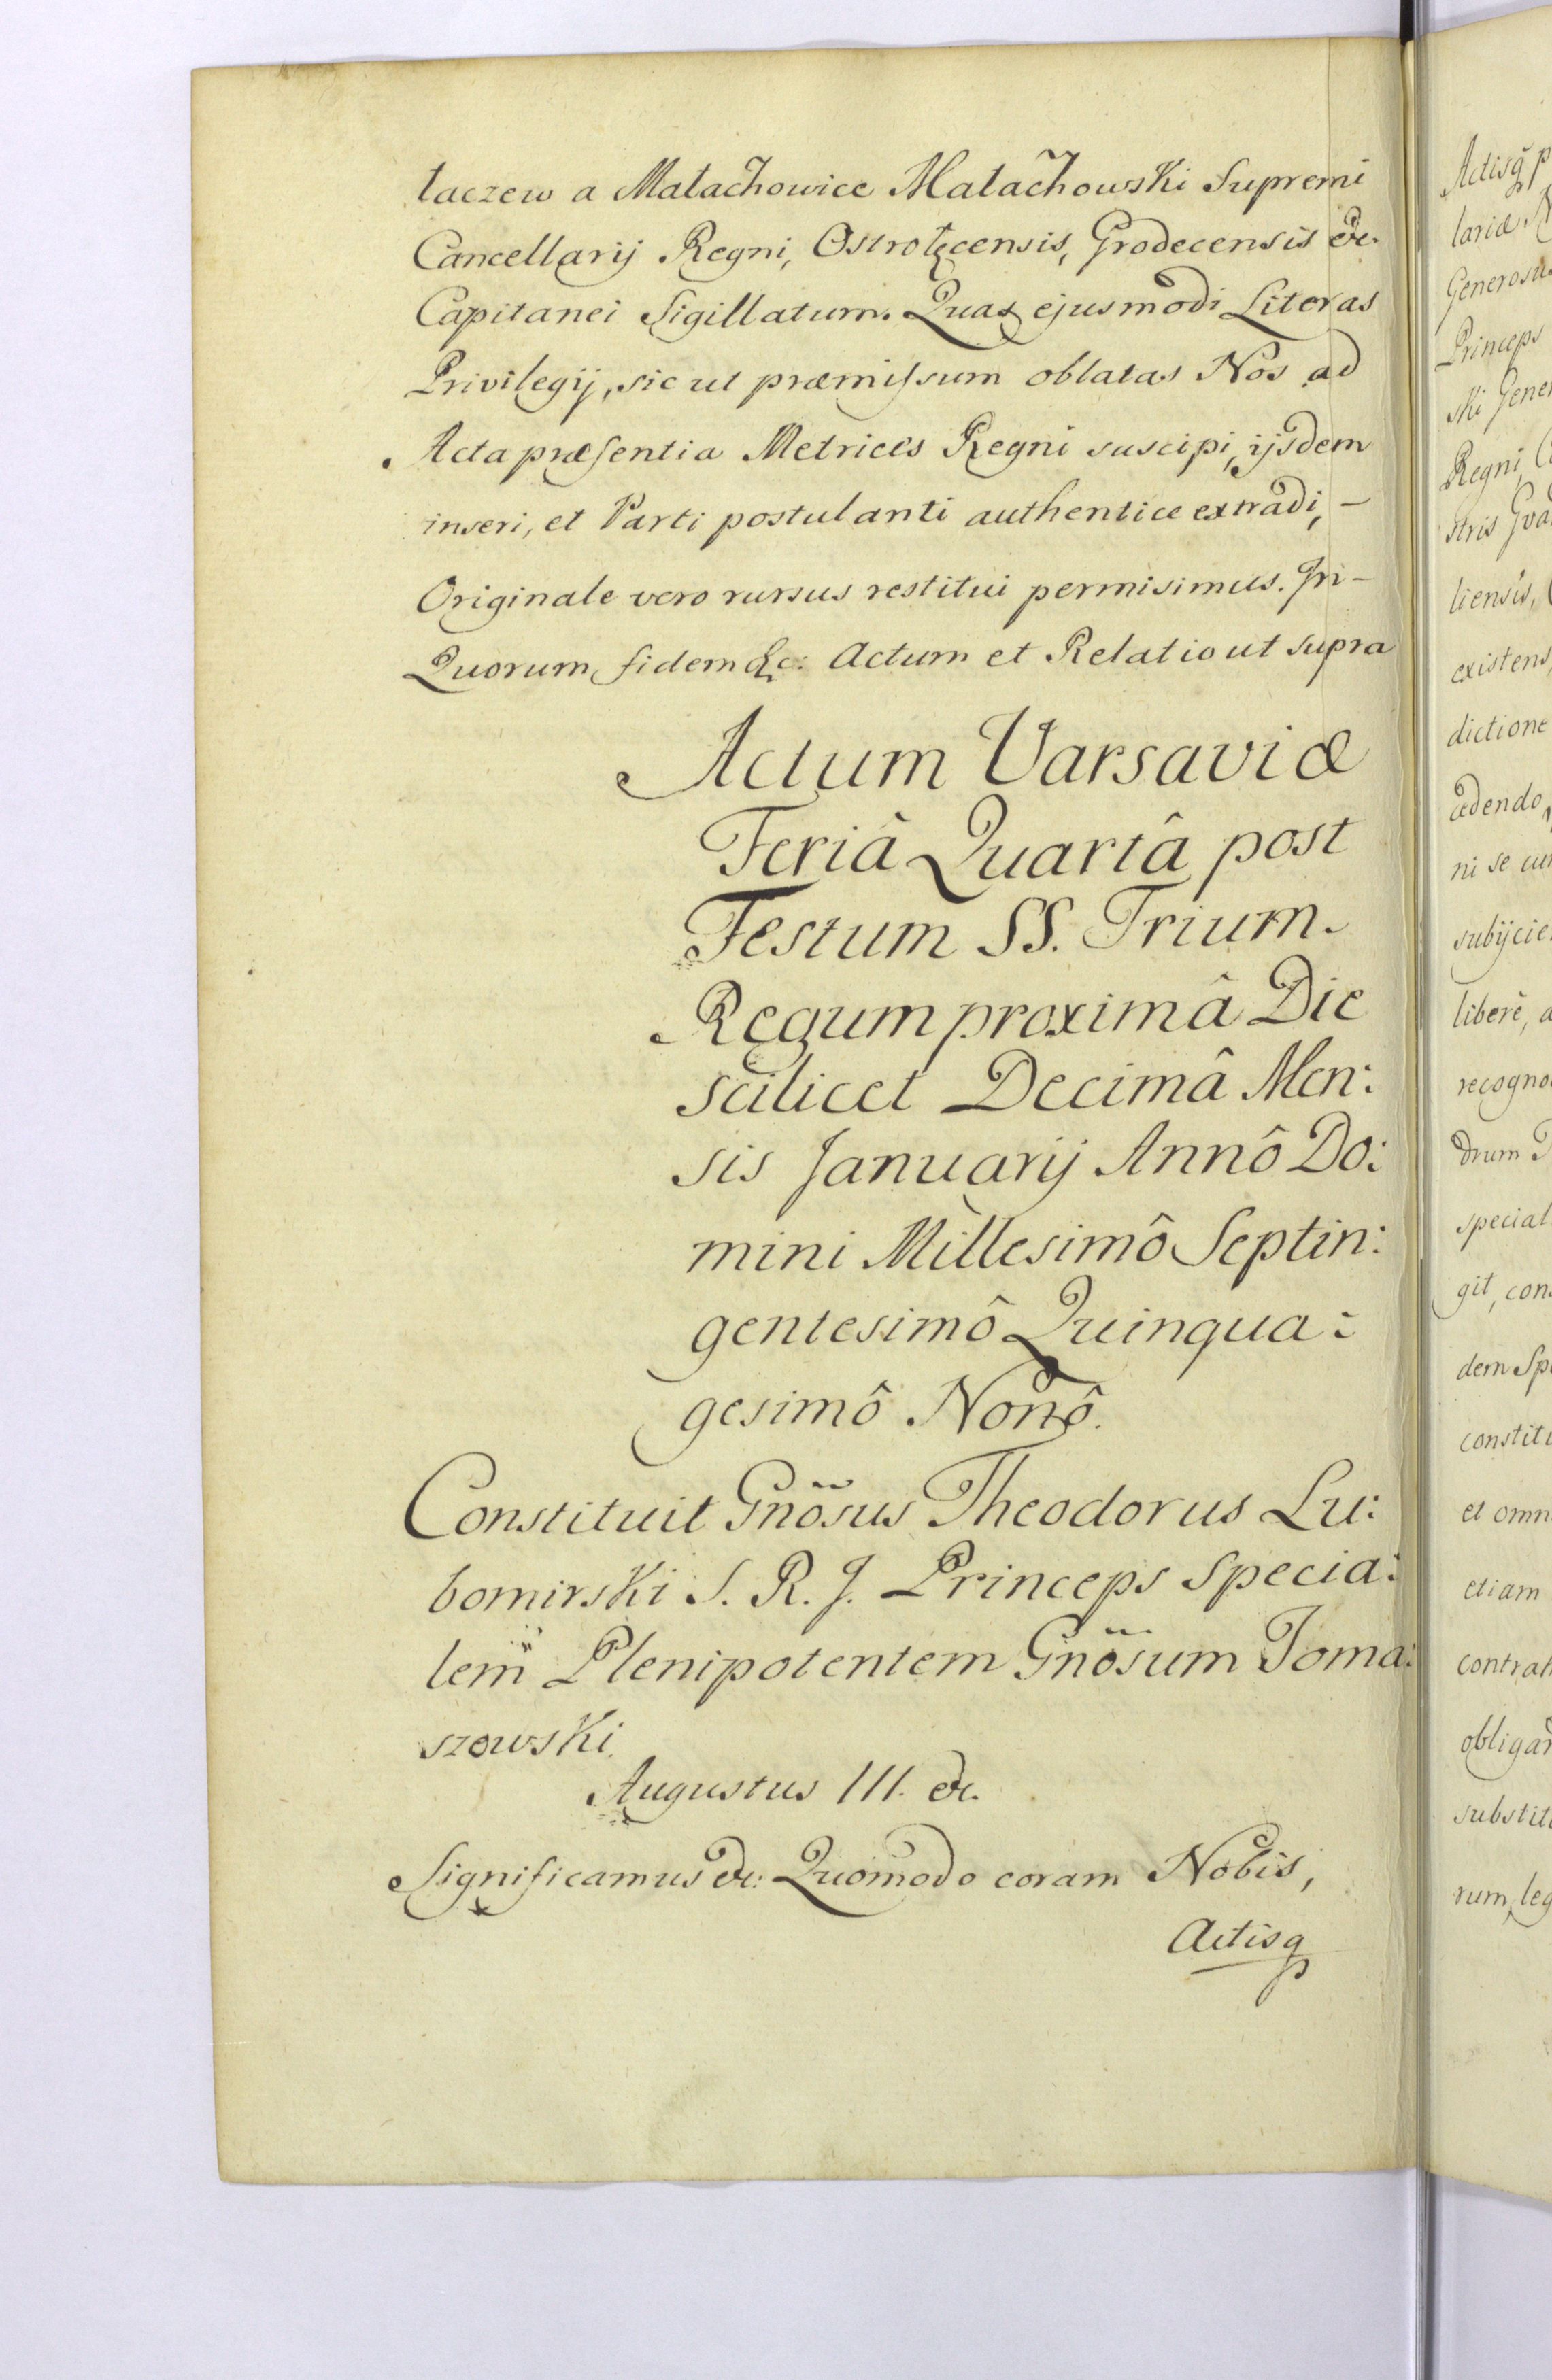 łaczew a Małachowice Małachowski Supremi
Cancellarij Regni, Ostrołęcensis, Grodecensis &c.
Capitanei Sigillatum. Quas ejusmodi Literas
Privilegij, sic ut præmissum oblatas Nos ad
Acta præsentia Metrices Regni suscipi, ijsdem
inseri, et Parti postulanti authentice extradi, -
Originale vero rursus restitui permisimus. In -
Quorum fidem &c: Actum et Relatio ut supra
Actum Varsaviæ
Feriâ Quartâ post
Festum SS. Trium.
Regum proximâ Die
scilicet Decimâ Men:
sis Januarij Annô Do:
mini Millesimô Septin:
gentesimô Quinqua:
gesimô Nonô.
Constituit Gnõsus Theodorus Lu:
bomirski S. R. J. Princeps Specia:
lem Plenipotentem Gnõsum Toma:
szowski.
Augustus III. &c.
Significamus &c: Quomodo coram Nobis,
Actisq
Actisq p
lariæ. N
Generosus
Princeps
ski Gener
Regni,
stris Gvar
liensis,
existens,
dictione
ædendo,
ni se cum
subijcie
liberè, a
recogno
drum
special
git, con
dem Spe
constitu
et omn
etiam
contrah
obligan
substit
rum, leg